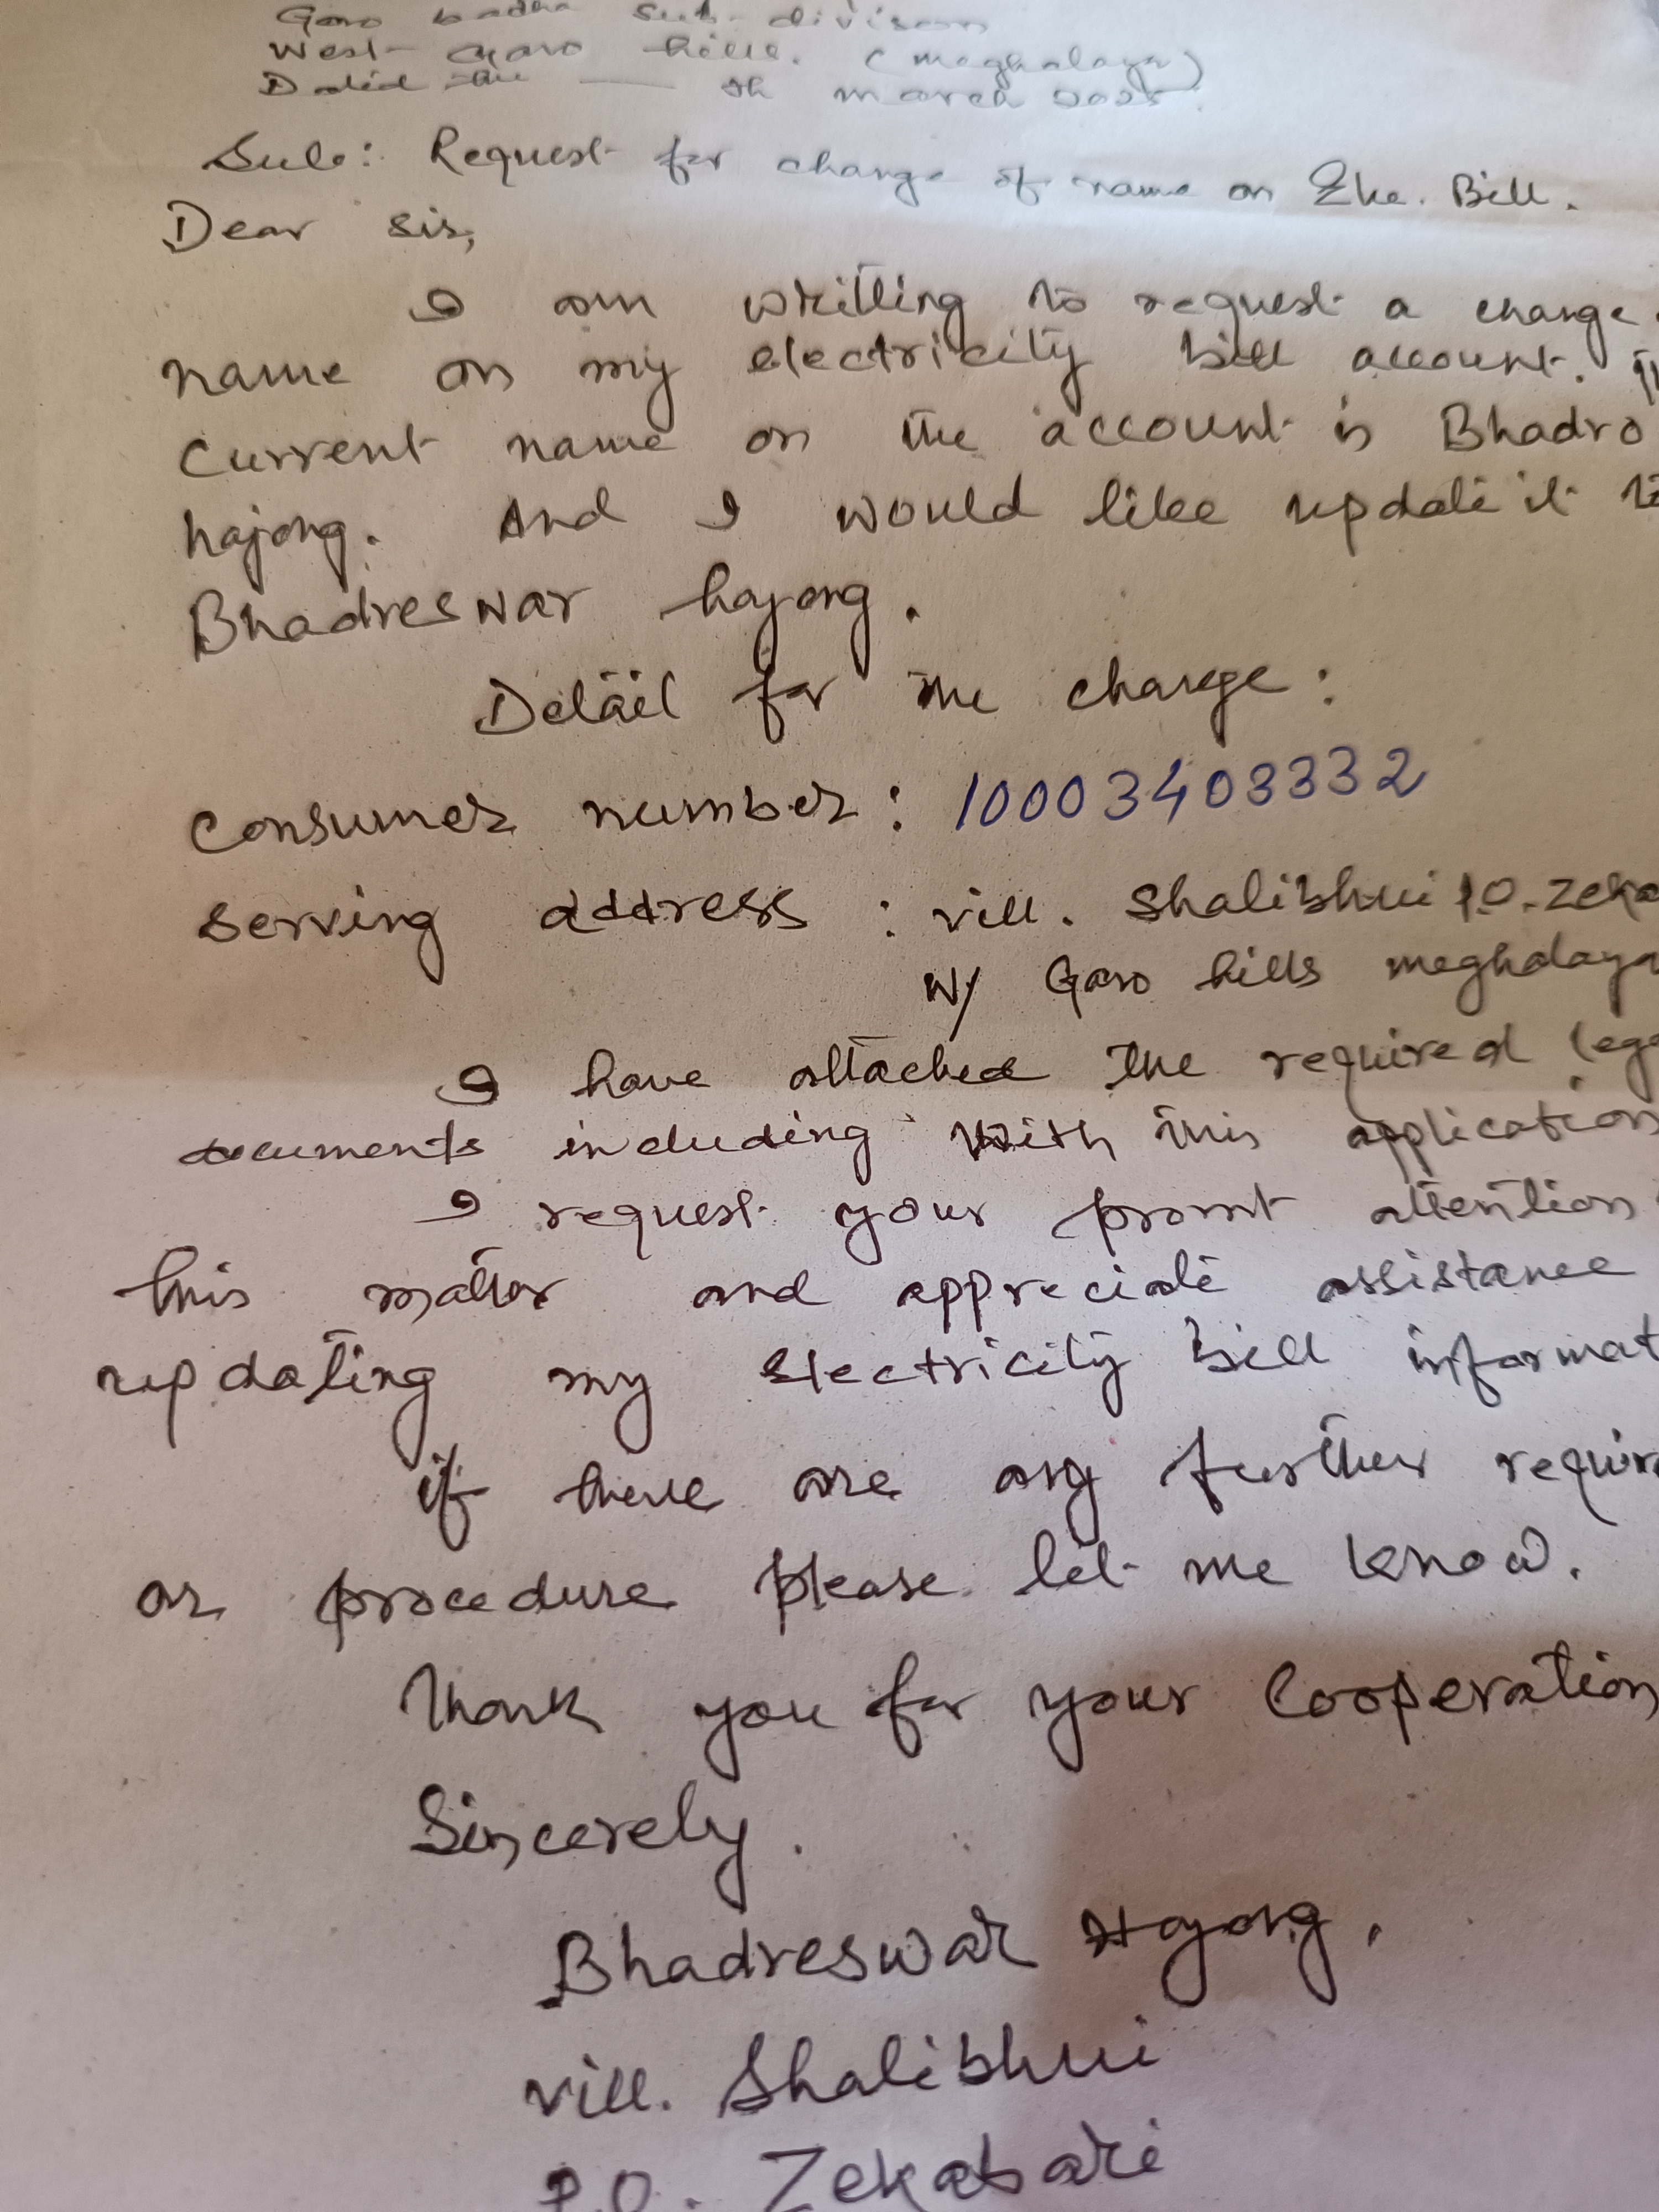 Garo badha Sub-divison
West Garo hills. (meghalaya)
Dated the — th march 2025.
Sub: Request for change of name on Ele. Bill.
Dear sir,
I am writting to request a change
name on my electricity bill account.
Current name on the account is Bhadro
hajong. And I would like update it to
Bhadreswar hajong.
Detail for the change:
Consumer number: 10003403332
serving address : vill. Shalibhui P.O. Zeka
W/ Garo hills meghalaya
I have attached the required lega
documents including with this application
I request your promt attention
this matter and appreciate assistance
updating my Electricity bill informat
if there are any further require
or procedure please let me know.
Thank you for your Cooperation
Sincerely.
Bhadreswar Hajong,
vill. Shalibhui
P.O. Zekabari